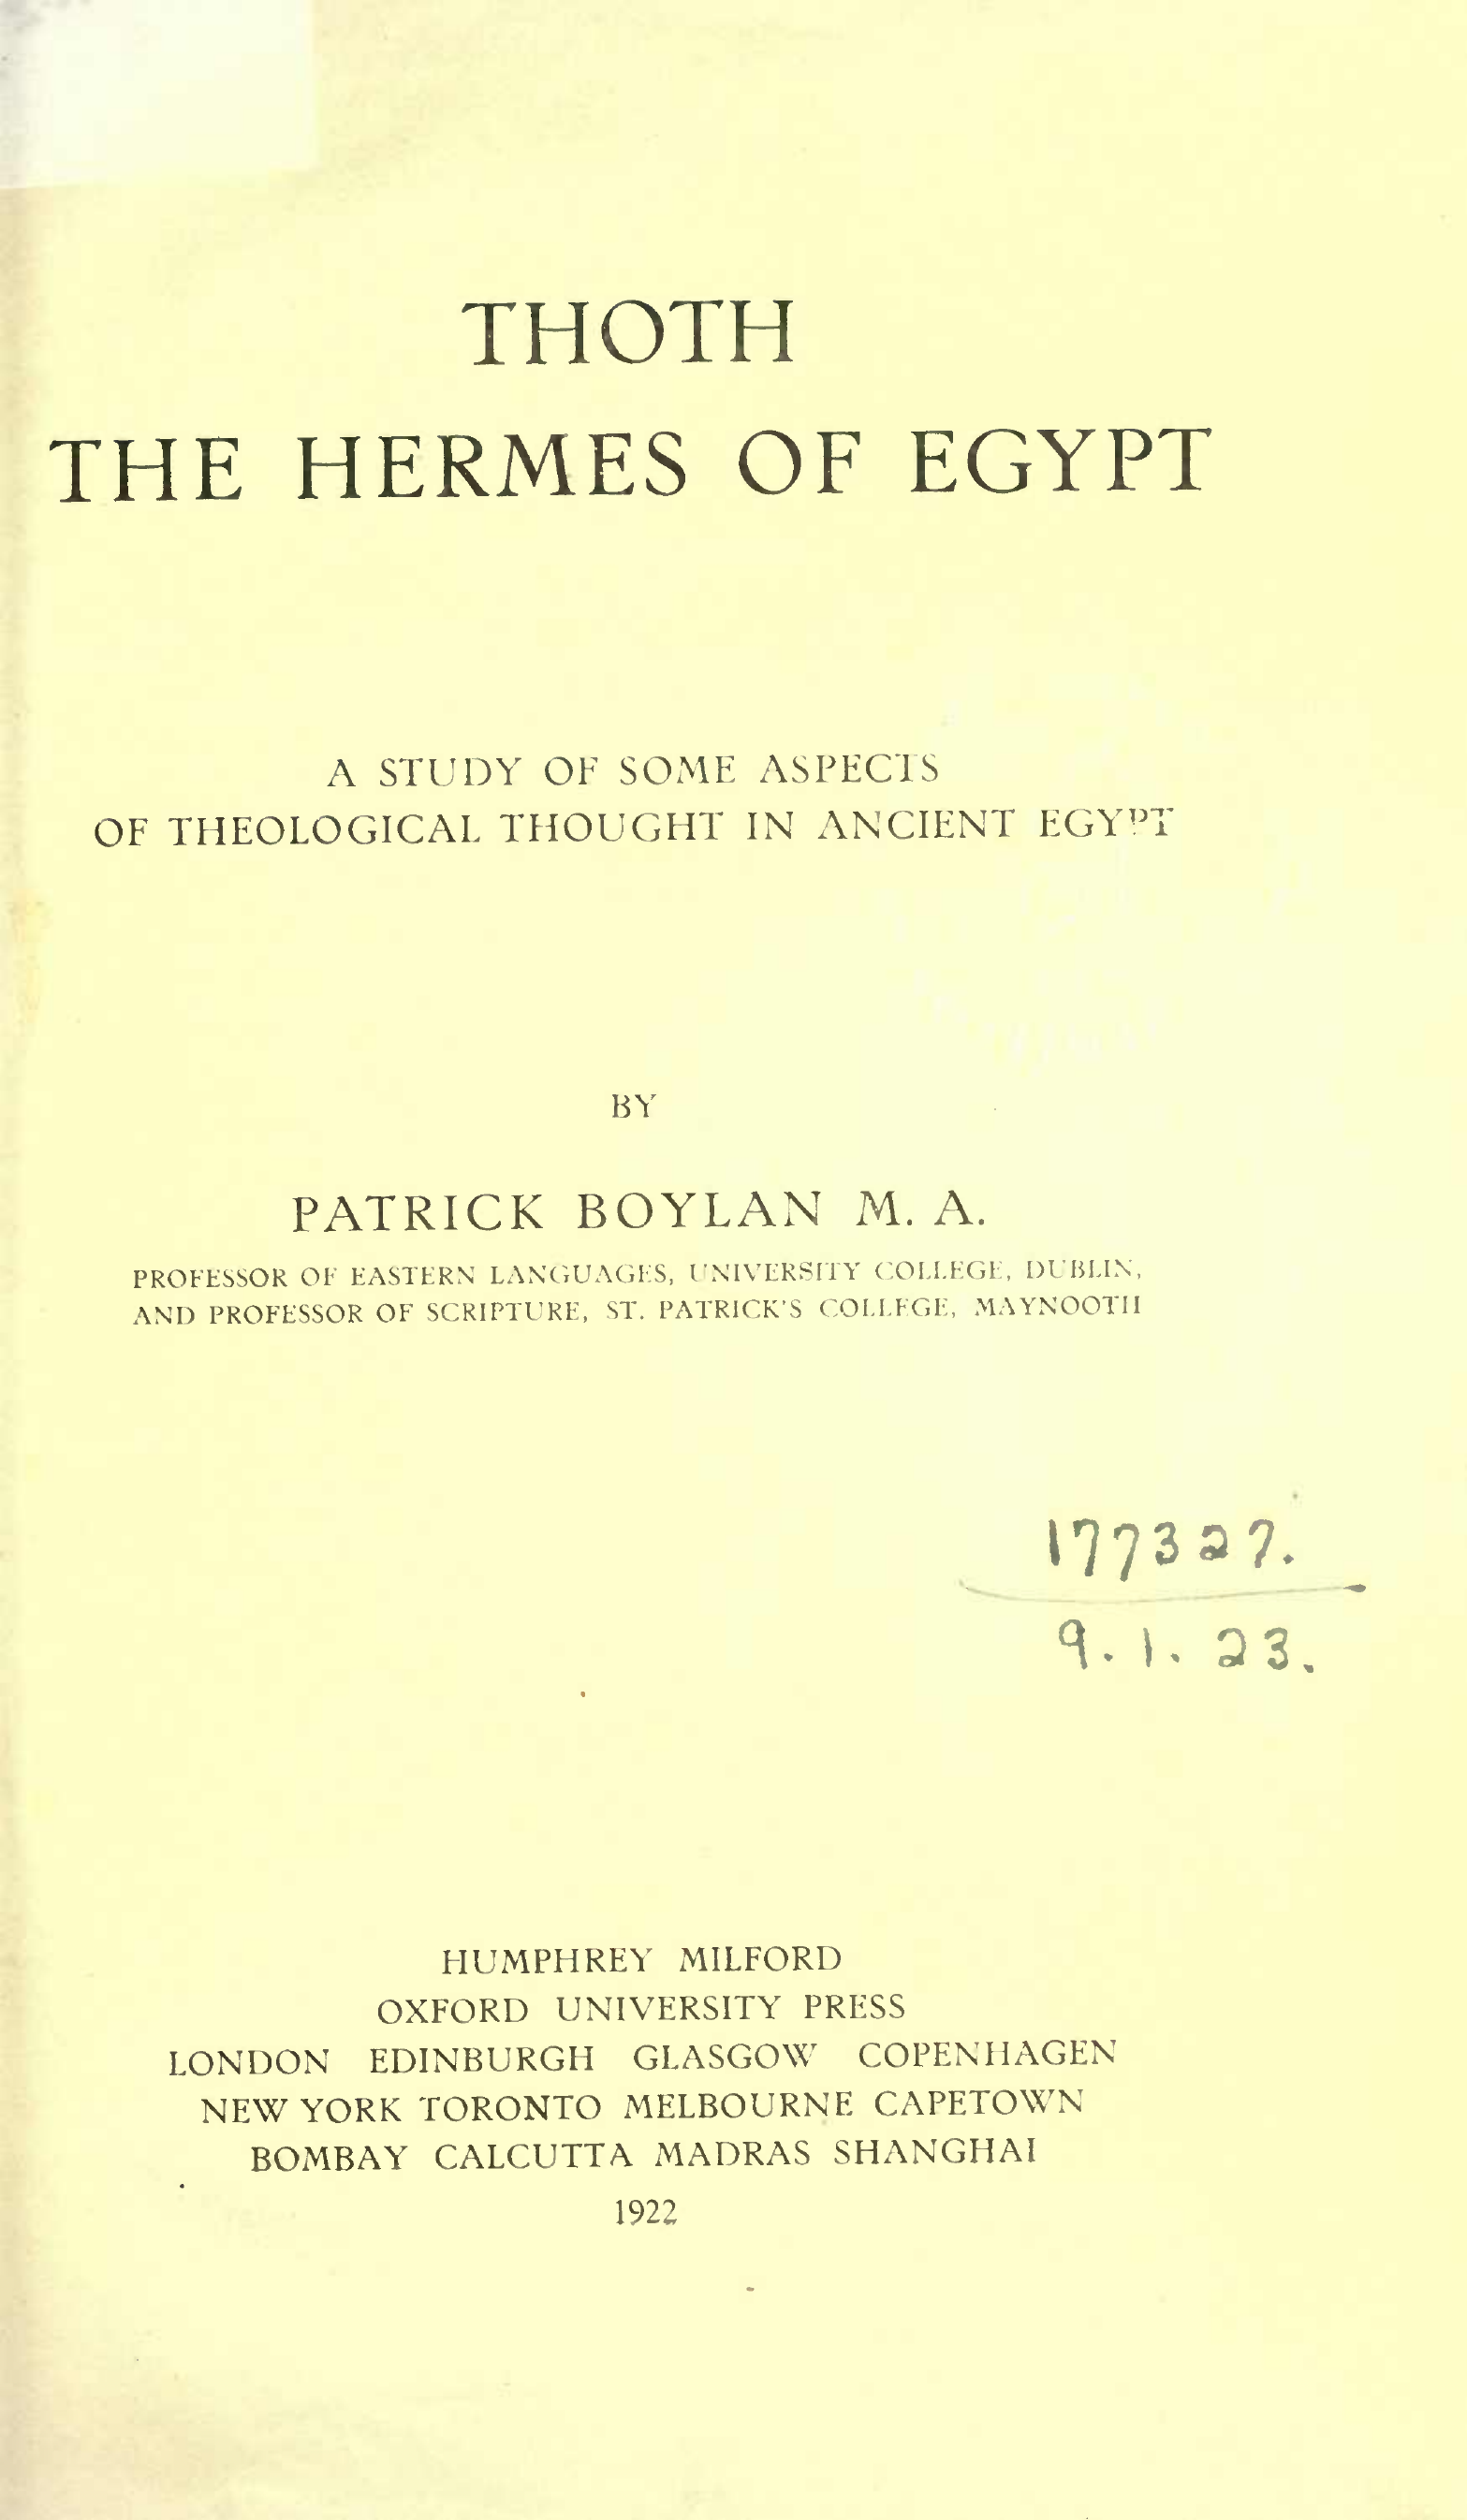 THOTH
THE HERMES OF EGYPT
A STUDY OF SOME ASPECTS
OF THEOLOGICAL THOUGHT IN ANCIENT EGYPT
BY
PATRICK BOYLAN M. A.
PROFESSOR OF EASTERN LANGUAGES, UNIVERSITY COLLEGE, DUBLIN,
AND PROFESSOR OF SCRIPTURE, ST. PATRICK'S COLLEGE, MAYNOOTH
177327.
9. 1. 23.
HUMPHREY MILFORD
OXFORD UNIVERSITY PRESS
LONDON EDINBURGH GLASGOW COPENHAGEN
NEW YORK TORONTO MELBOURNE CAPETOWN
BOMBAY CALCUTTA MADRAS SHANGHAI
1922